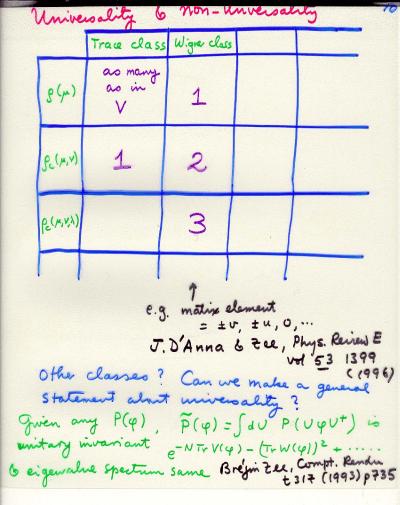 Universality & Non-Universality
10
Trace class Wigner class
ρ(μ) as many as in V 1
ρc(μ,ν) 1 2
ρc(μ,ν,λ) 3
↑
e.g. matrix element
= ±v, ±u, 0, ...
J. D'Anna & Zee, Phys. Review E
vol 53 1399
(1996)
Other classes? Can we make a general
statement about universality?
Given any P(φ), P̃(φ) = ∫dU P(UφU†) is
unitary invariant e^-NTrV(φ) - (TrW(φ))² + ......
& eigenvalue spectrum same Brézin Zee, Compt. Rendu
t 317 (1993) p735